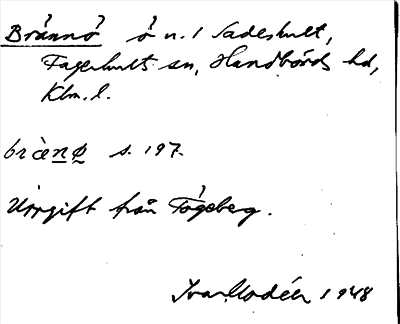 Brännö ö n. l Sadeshult,
Fagerhult sn, Handbörds hd,
Klm. l.
bränø s. 197.
Uppgift från Fågeberg.
Ivar Modéer 1948